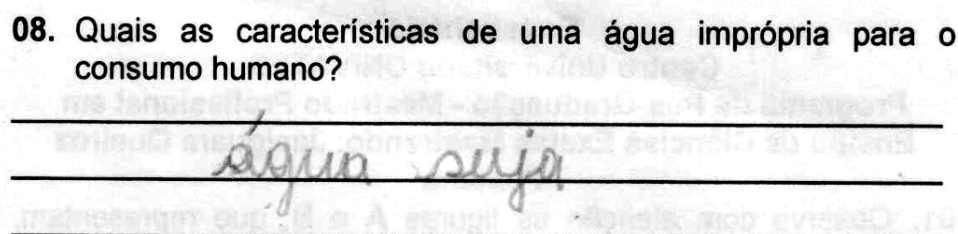 08. Quais as características de uma água imprópria para o
consumo humano?
água suja